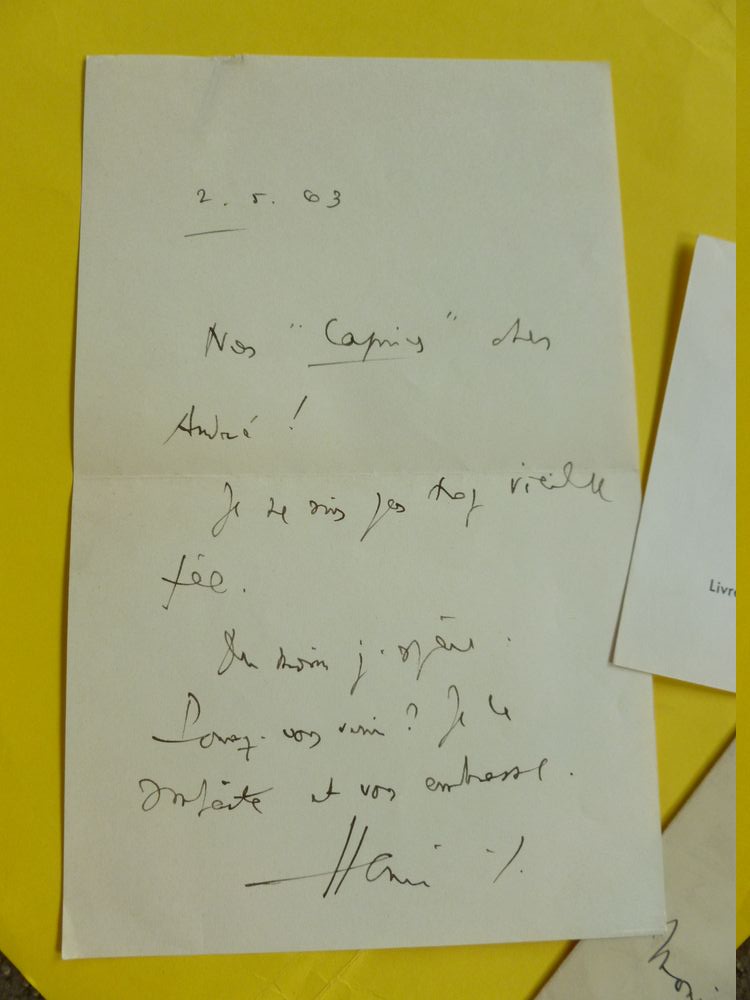 2. 5. 63
Nos "Caprices" cher
André !
Je ne suis pas trop vieille
fée.
Du moins j'espère.
Pouvez-vous venir ? Je le
souhaite et vous embrasse.
Henri
Livre